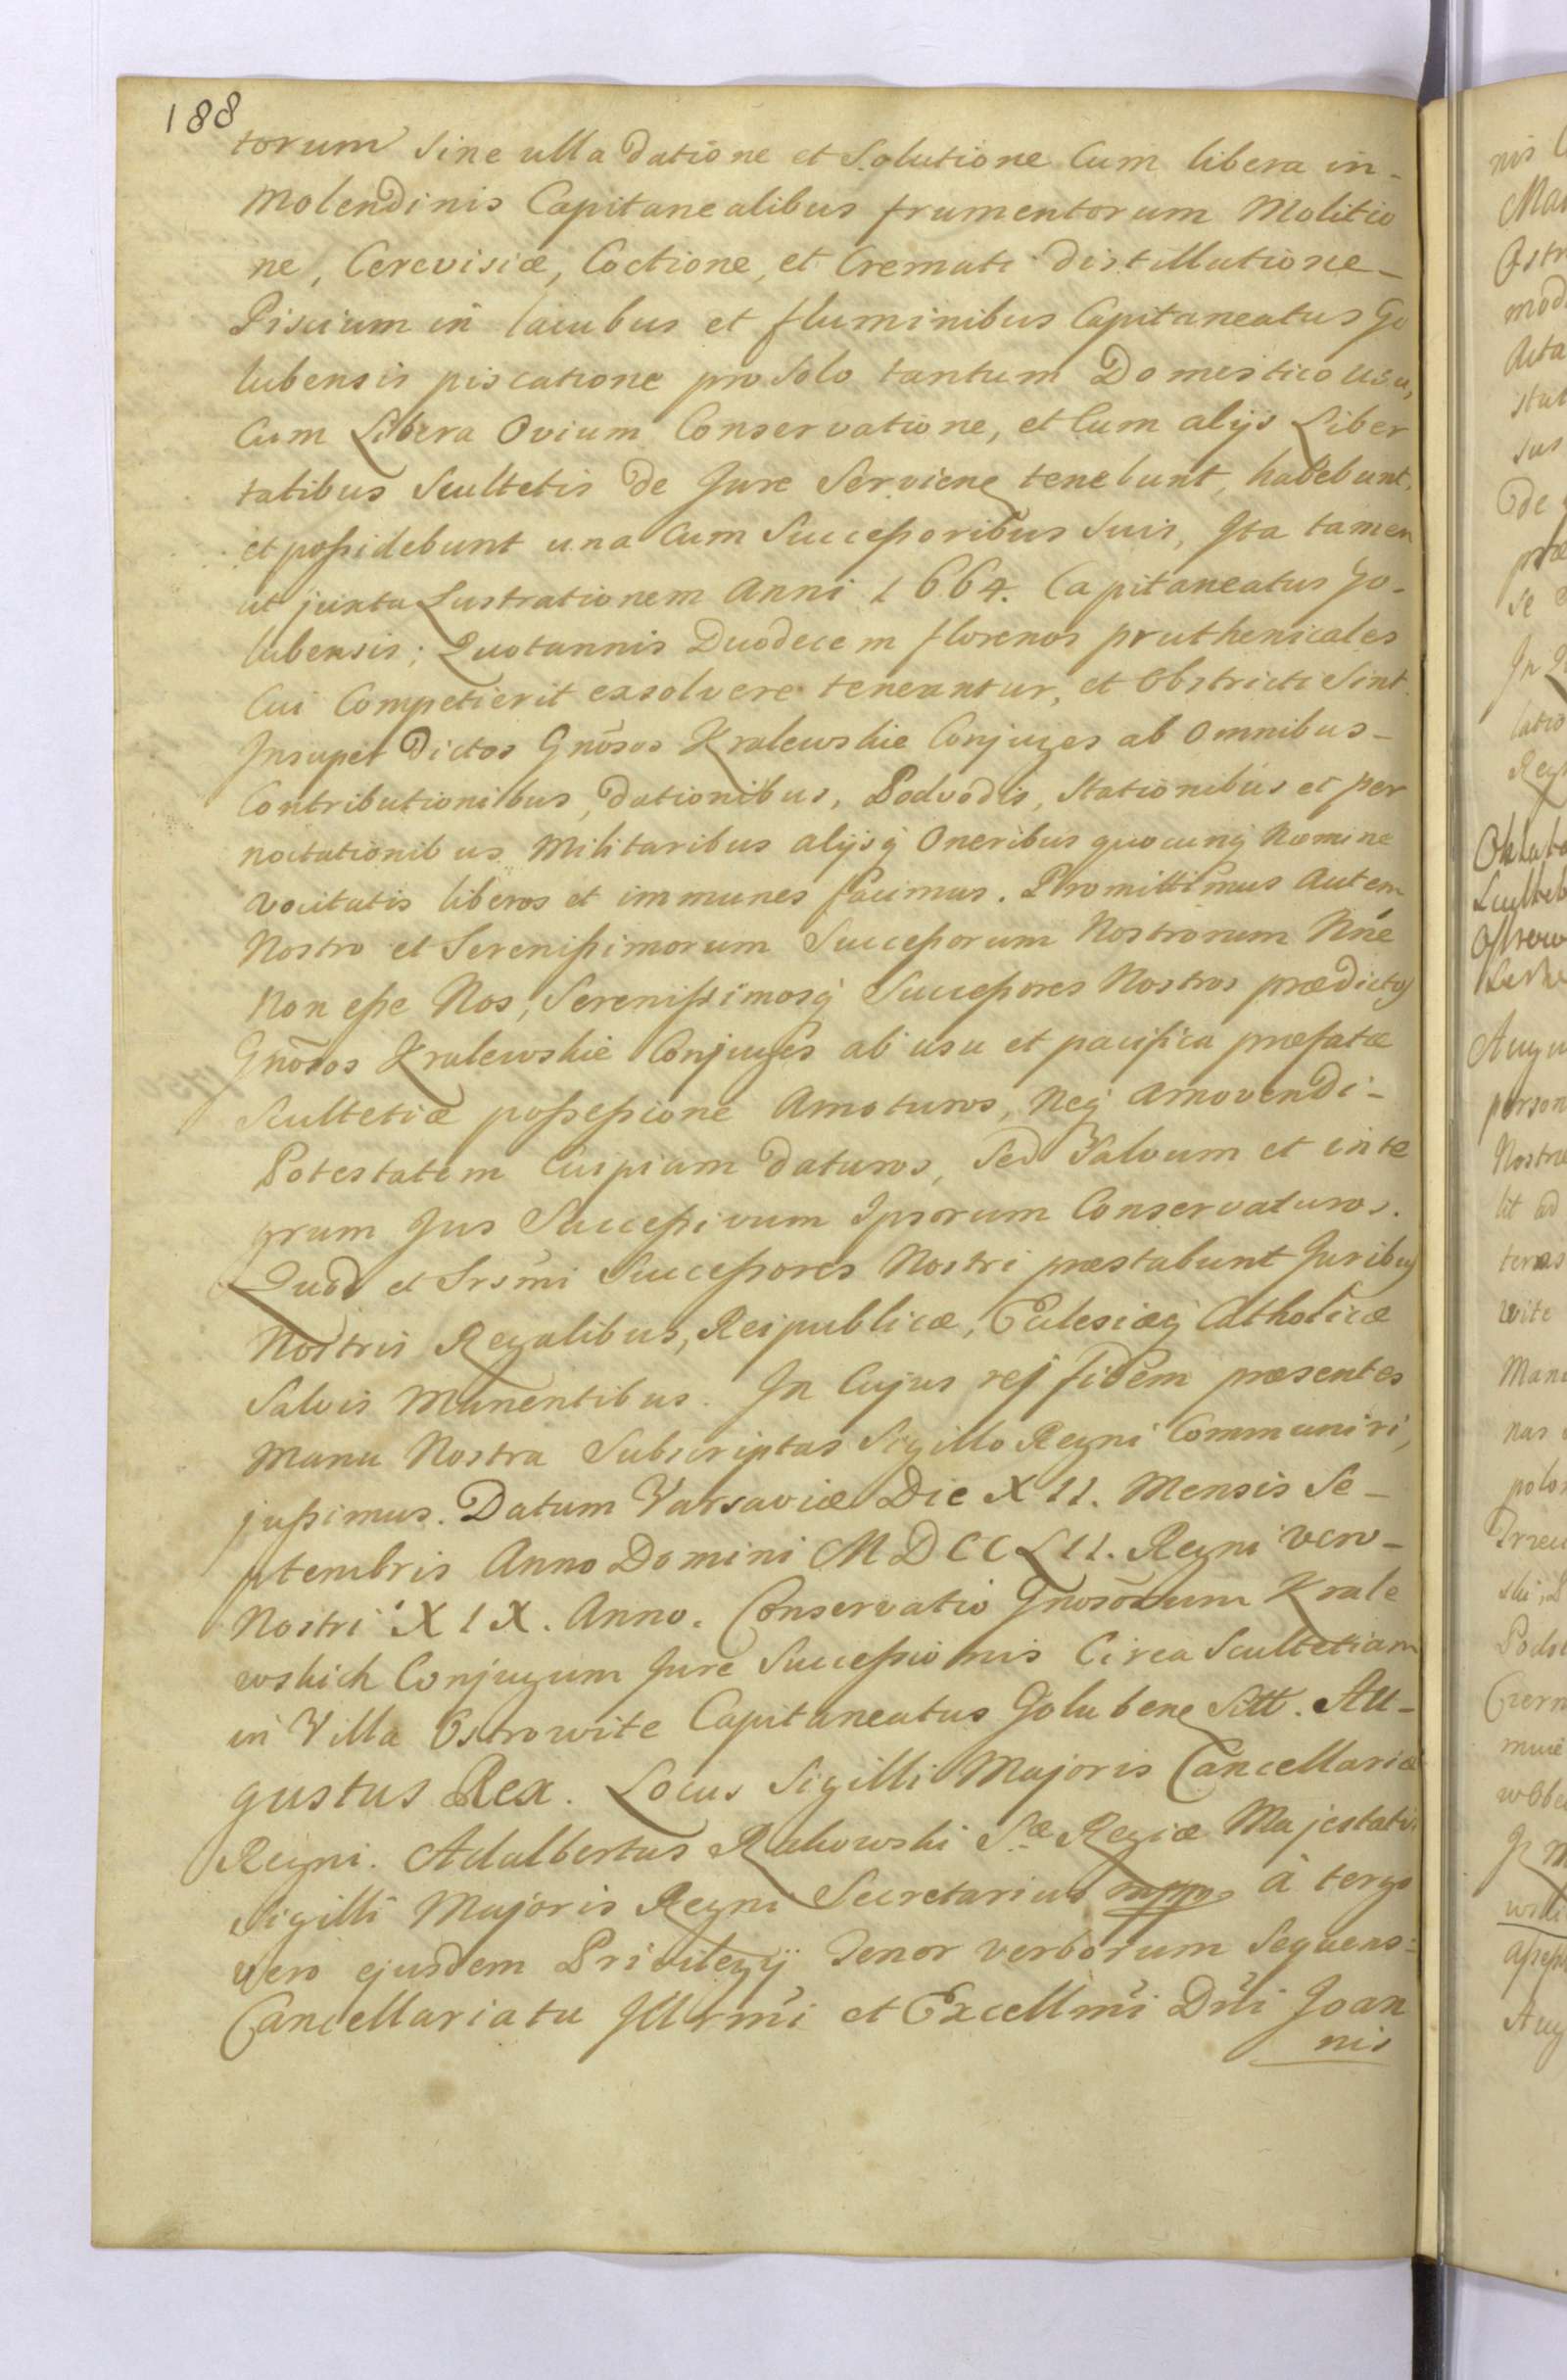 188
torum sine ulla datione et Solutione Cum libera in-
Molendinis Capitanealibus frumentorum Molitio
ne, Cerevisiæ, Coctione, et Cremati distillatione-
Piscium in lacubus et fluminibus Capitaneatus Go
lubensis piscatione pro solo tantum Domestico usu,
Cum Libera Ovium Conservatione, et Cum alijs Liber
tatibus Scultetis de Jure Servienę tenebunt, habebunt,
et poßidebunt una Cum Succeßoribus suis, Ita tamen
ut juxta Lustrationem Anni 1664. Capitaneatus Go-
lubensis; Quotannis Duodecem florenos pruthenicales
Cui Competierit exsolvere teneantur, et Obstricti Sint.
Insuper Dictos Gnōsos Kralewskie Conjuges ab Omnibus-
Contributionibus, dationibus, Podvodis, Stationibus et per
noctationibus Militaribus alijsq́ Oneribus quocunq́ Nomine
vocitatis liberos et immunes facimus. Promittimus Autem
Nostro et Sereni߃imorum Succeßorum Nostrorum Nńe
Non eße Nos, Sereni߃imosq́ Succeßores Nostros prædictos
Gnōsos Kralewskie Conjuges ab usu et pacifica præfatæ
Scultetiæ poßeßione Amoturos, Neq́ amovendi-
Potestatem Cuipiam daturos, Sed Salvum et inte
grum Jus Succeßivum Ipsorum Conservaturos.
Quod et Srsm̃i Succeßores Nostri præstabunt Juribus
Nostris Regalibus, Reipublicæ, Eclesiæq́ Catholicæ
Salvis Manentibus. In Cujus rej fidem præsentes
Manu Nostra Subscriptas Sigillo Regni Communiri,
jußimus. Datum Varsaviæ Die XII. Mensis Se-
ptembris Anno Domini MDCCLII. Regni vero-
Nostri XIX. Anno. Conservatio Gnosōrum Krale
wskich Conjugum Jure Succeßionis Circa Scultetiam
in Villa Ostrowite Capitaneatus Golubenę Sitt. Au-
gustus Rex. Locus Sigilli Majoris Cancellariæ
Regni. Adalbertus Rakowski Sæ Regiæ Majestatis
Sigilli Majoris Regni Secretarius mpp à tergo
vero ejusdem Privilegij Tenor verborum Sequens:
Cancellariatu Illrm̃i et Excellm̃i Dńi Joan
nis